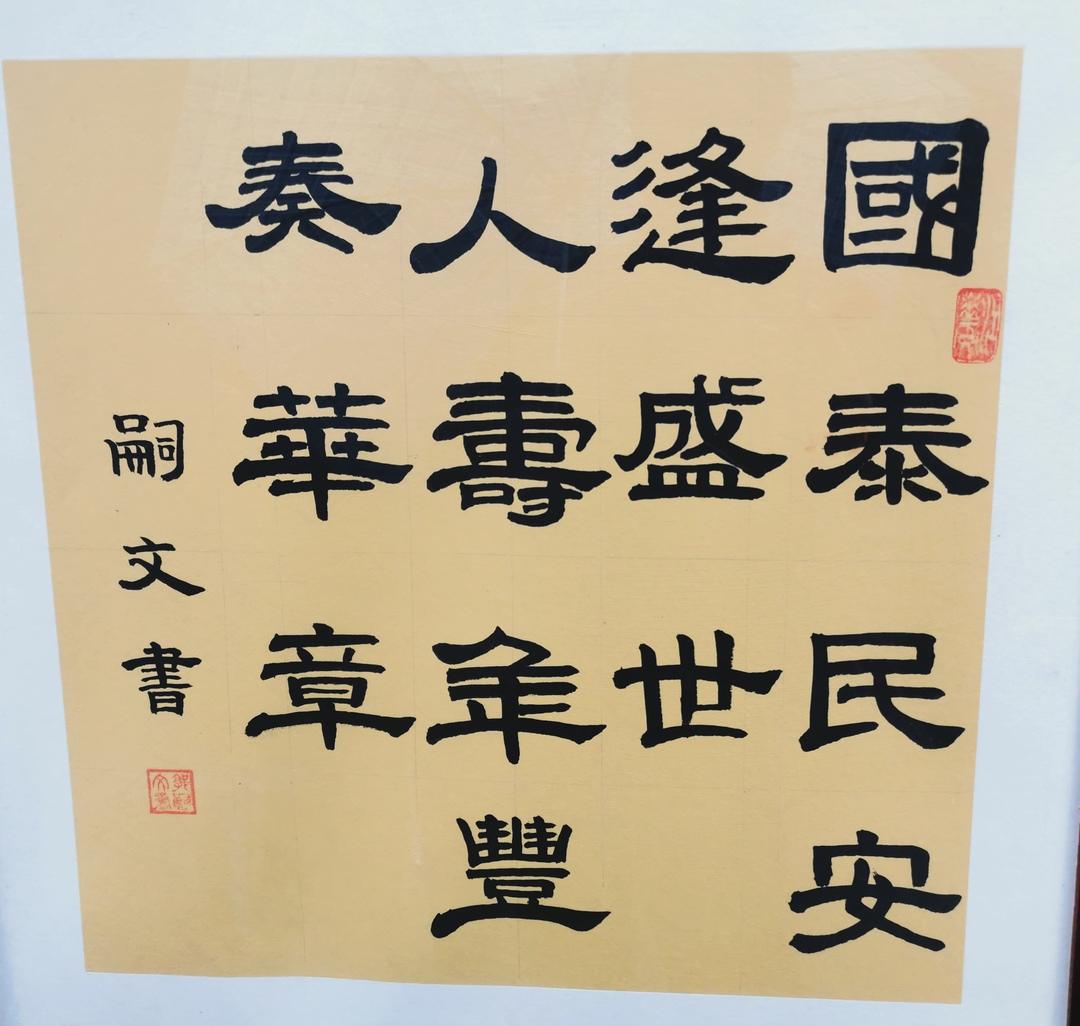 國泰民安
逢盛世
人壽年豐
奏華章
嗣文書